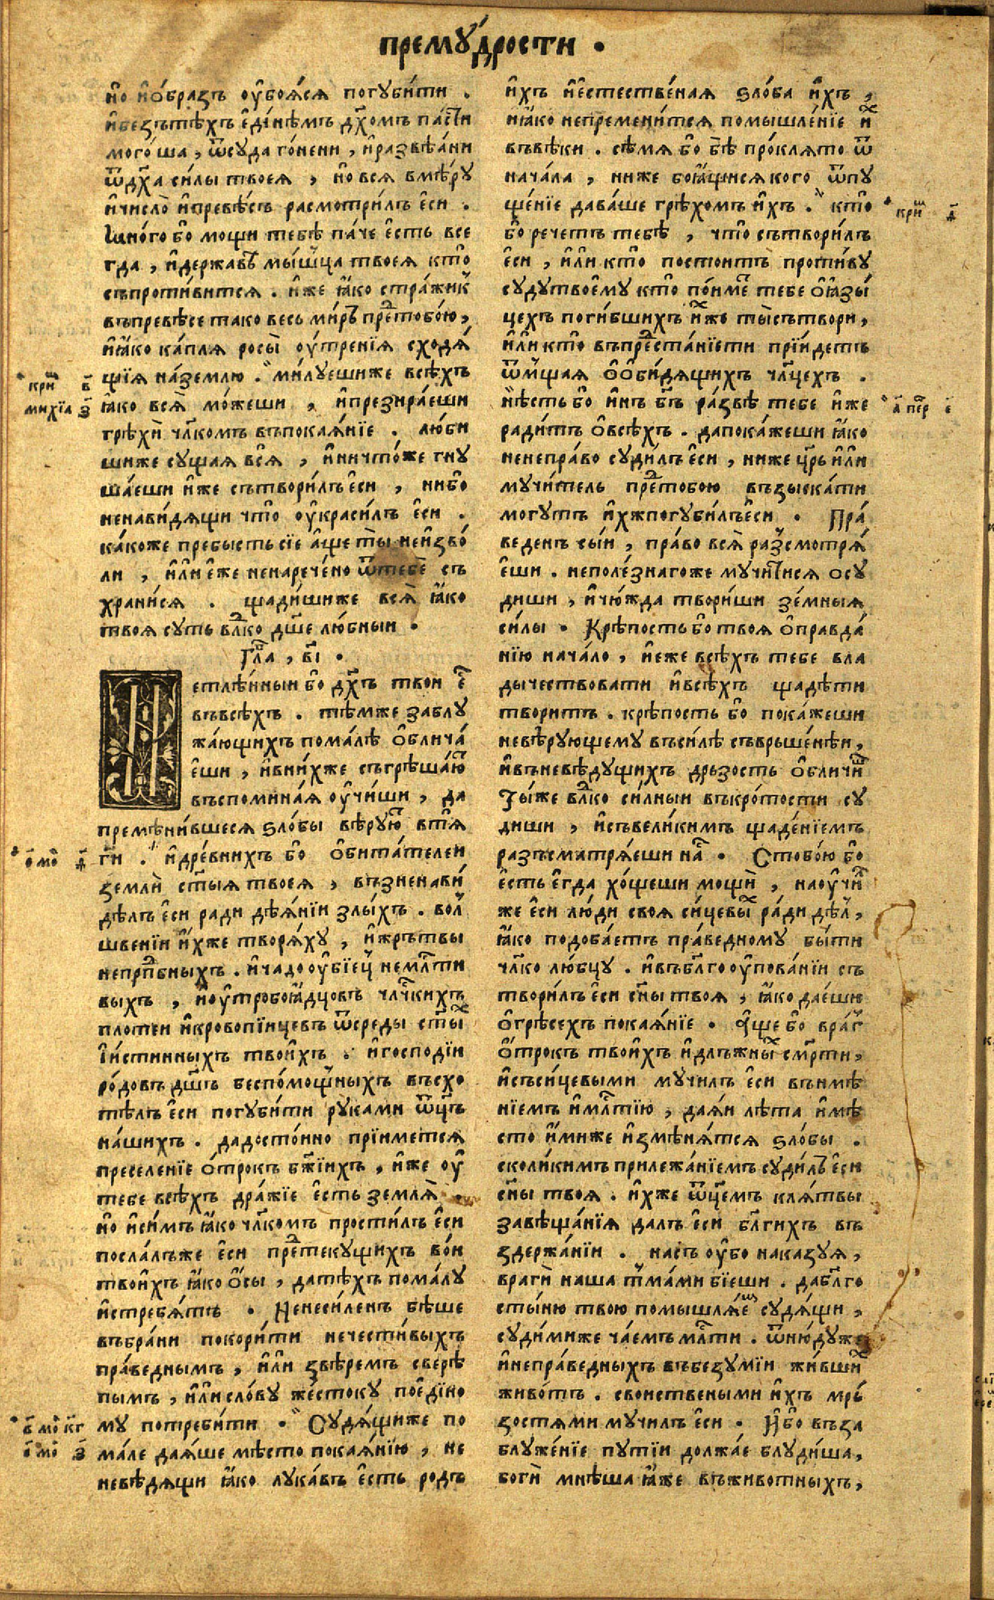 премꙋ́дрости .
но и҆о́бразъ оу҆боѧ́сѧ погꙋби́ти .
и҆безътѣ́хъ е҆ди́нѣмъ дх҃омъ па́сти
мого́ша , ѿсꙋда го́нени , и҆развѣ́ани
ѿдх҃а си́лы твоеѧ̀ , но всѧ вмѣ́рꙋ
и҆число̀ и҆превѣ́съ расмотри́лъ е҆си .
мно́го бо мощи тебѣ̀ па́че е҆сть все
гда , и҆держа́вѣ мы́шца твоеѧ̀ кто̀
съпроти́витсѧ . и҆же ꙗ҆́ко стра́жик
въпревѣ́се тако весь ми́ръ пре҆тобо́ю ,
и҆ꙗ҆ко ка́плѧ росы̀ оу҆́тренїѧ сходѧ́
щїѧ на́землю . ми́лꙋешиже всѣ́хъ
кри҆ в҃
ꙗ҆́ко всѧ̀ мо́жеши , и҆презира́еши
михїа з҃
грѣхѝ чл҃комъ въпокаѧ́нїе . лю́би
шиже сꙋщаѧ всѧ̀ , и҆ничто́же гнꙋ
ша́еши и҆́же сътвори́лъ е҆си , ни́бо
ненави́дѧщи что̀ оу҆краси́лъ е҆си .
ка́коже пребысть сїе а҆́ще ты̀ неи҆зво́
ли , и҆ли е҆́же ненарече́но ѿтебѐ съ
храни́сѧ . щади́шиже всѧ̀ ꙗ҆́ко
твоѧ сꙋть влⷣко дш҃е лю́бныи .
Гла҃ , в҃і .
Нетлѣ́нныи бо дх҃ъ твои е҆҃
въвсѣ́хъ . тѣ́мже заблꙋ
жа́ющихъ пома́лѣ о҆блича́
е҆ши , и҆вни́хже съгрѣша́ю҃
въспомина́ѧ оу҆чи́ши , да
премѣни́вшесѧ ѕло́бы вѣ́рꙋю҃ втѧ̀
ѳ҃ мо҃ д҃
гⷭ҇и . и҆дре́внихъ бо о҆бита́телеи
землѝ ст҃ыѧ твоеѧ , възненави́
дѣлъ е҆си ради дѣѧ́нїи злы́хъ . вол
шве́нїи и҆́хже творѧ́хꙋ , и҆жръ́твы
непрпⷣбныхъ . и҆чадооу҆бі́ец немлⷭ҇ти
выхъ , и҆оу҆тробоꙗ҆́дцовъ члч҃кихъ
плотеи и҆кровопі́ицевъ ѿсреды ст҃ы҃
и҆́истинныхъ твои́хъ . и҆господї́и
ро́довъ дш҃ъ беспо́мощныхъ въсхо
тѣ́лъ е҆си погꙋби́ти рꙋка́ми ѿц҃ъ
на́шихъ . дадосто́ино прїи́метсѧ
преселенїе о҆́трокъ бж҃їихъ , и҆́же оу҆
тебе всѣ́хъ дра́жїе е҆сть землѧ̀
но и҆си́мъ ꙗ҆́ко чл҃комъ прости́лъ е҆си
посла́лъже е҆си пре҆текꙋ́щихъ вои
твои́хъ ꙗ҆ко о҆́сы , датѣ́хъ пома́лꙋ
и҆стребѧ́тъ . Ненеси́ленъ бѣ́ше
въбра́ни покори́ти нечести́выхъ
пра́веднымъ , и҆ли звѣ́ремъ сверѣ́
пымъ , и҆ли сло́вꙋ же́стокꙋ пое҆ди́но
в҃ мо҃ кг҃
мꙋ потреби́ти . Сꙋдѧ́щиже по
ѳ҃ мо҃ з҃
ма́ле даѧ́ше мѣ́сто покаѧ́нїю , не
невѣ́дѧщи ꙗ҆ко лꙋка́въ е҆сть родъ
и҆́хъ и҆е҆стестве́наѧ ѕло́ба и҆́хъ ,
и҆ꙗ҆́ко непремени́тсѧ помышле́нїе и҆҃
въвѣ́ки . сѣ́мѧ бо бѣ̀ про́клѧто ѿ
нача́ла , ниже боѧ́щисѧ кого ѿпꙋ
ще́нїе дава́ше грѣхо́мъ и҆́хъ . кто̀
кри҆ д҃
бо рече́тъ тебѣ̀ , что̀ сътвори́лъ
е҆си , и҆ли кто̀ постои́тъ проти́вꙋ
сꙋдꙋтвоемꙋ кто̀ по́име҃ тебе о҆ꙗ҆зы́
цехъ поги́бшихъ и҆́хже ты̀сътвори ,
и҆ли кто̀ въпрⷣеста́нїети прїи́детъ
ѿмща́ѧ о҆о҆би́дѧщихъ чл҃цехъ .
нѣ́сть бо и҆нъ бг҃ъ ра́звѣ тебе и҆же
а҃ пе҆р е҃
ради́тъ о҆всѣ́хъ . дапока́жеши ꙗ҆ко
ненепра́во сꙋди́лъ е҆си , ниже цр҃ь и҆ли
мꙋчи́тель пре҆тобою възыска́ти
могꙋтъ и҆́хжпогꙋби́лъе҆си . Пра́
веденъ сы́и , пра́во всѧ̀ ра́зсмотрѧ́
е҆ши . неполе́знагоже мꙋчи́тисѧ осꙋ
диши , и҆чю́жда твори́ши зе́мныѧ
си́лы . Крѣ́пость бо твоѧ о҆правда́
нїю нача́ло , и҆еже всѣ́хъ тебе вла
ды́чествовати и҆всѣ́хъ щадѣ́ти
твори́тъ . крѣ́пость бо пока́жеши
невѣ́рꙋющемꙋ въси́лѣ съврьше́нѣи ,
и҆въневѣ́дꙋщихъ дръ́зость о҆бличи҃
Ты́же влⷣко си́лныи въкро́тости сꙋ
диши , и҆съвели́кимъ щаде́нїемъ
разъсматрѧ́еши на҃ . Стобо́ю бо
е҆́сть е҆гда хо́щеши мощѝ , наоу҆чи҃
же е҆си лю́ди своѧ си́цевы҃ ра́ди дѣ́л ,
ꙗ҆ко подоба́етъ пра́ведномꙋ бы́ти
чл҃ко лю́бцꙋ . и҆въбл҃го оу҆пова́нїи съ
твори́лъ е҆си сн҃ы твоѧ , ꙗ҆ко дае́ши
о҆грѣсе́хъ покаѧ́нїе . а҆́ще бо враг
о҆́трокъ твои́хъ и҆длъжны҃ см҃рти ,
и҆съси́цевыми мꙋчи́лъ е҆си вънимѣ́
нїемъ и҆млⷭ҇тїю , даѧ́и лѣ́та и҆мѣ́
сто и҆́миже и҆змѣнѧ́тсѧ ѕло́бы .
сколи́кимъ прилежа́нїемъ сꙋди́лъ е҆си
сн҃ы твоѧ . и҆́хже ѿцемъ клѧ́твы
завѣща́нїѧ далъ е҆си бл҃гихъ въ
здержа́нїи . насъ оу҆бо наказꙋѧ ,
врагѝ наша тма́ми бїе́ши . дабл҃го
сты́ню твою помышлѧ́е҃ сꙋдѧ́щи ,
сꙋди́миже ча́емъ млⷭ҇ти . ѿню́дꙋже
и҆непра́ведныхъ въбезꙋ́мїи жи́вши҃
живо́тъ . сво́иствеными и҆́хъ мръ́
зостѧ́ми мꙋчи́лъ е҆си . И҆́бо въза
блꙋже́нїе пꙋтїи должа́е блꙋди́ша ,
боги мнѣ́ша ꙗ҆́же въживо́тныхъ ,